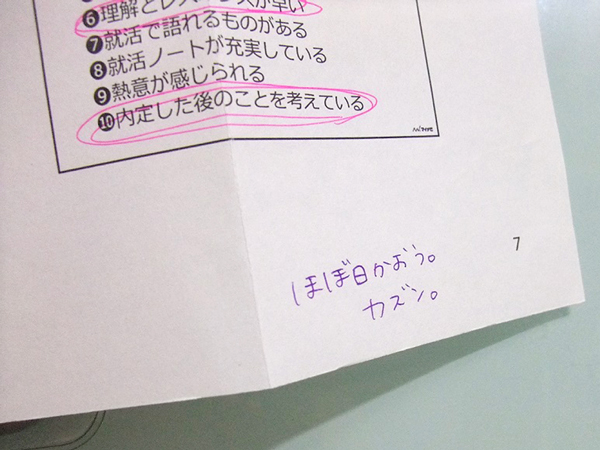 ❻理解とレスポンスが早い
❼就活で語れるものがある
❽就活ノートが充実している
❾熱意が感じられる
❿内定した後のことを考えている
7
ほぼ日かおう。
カズン。